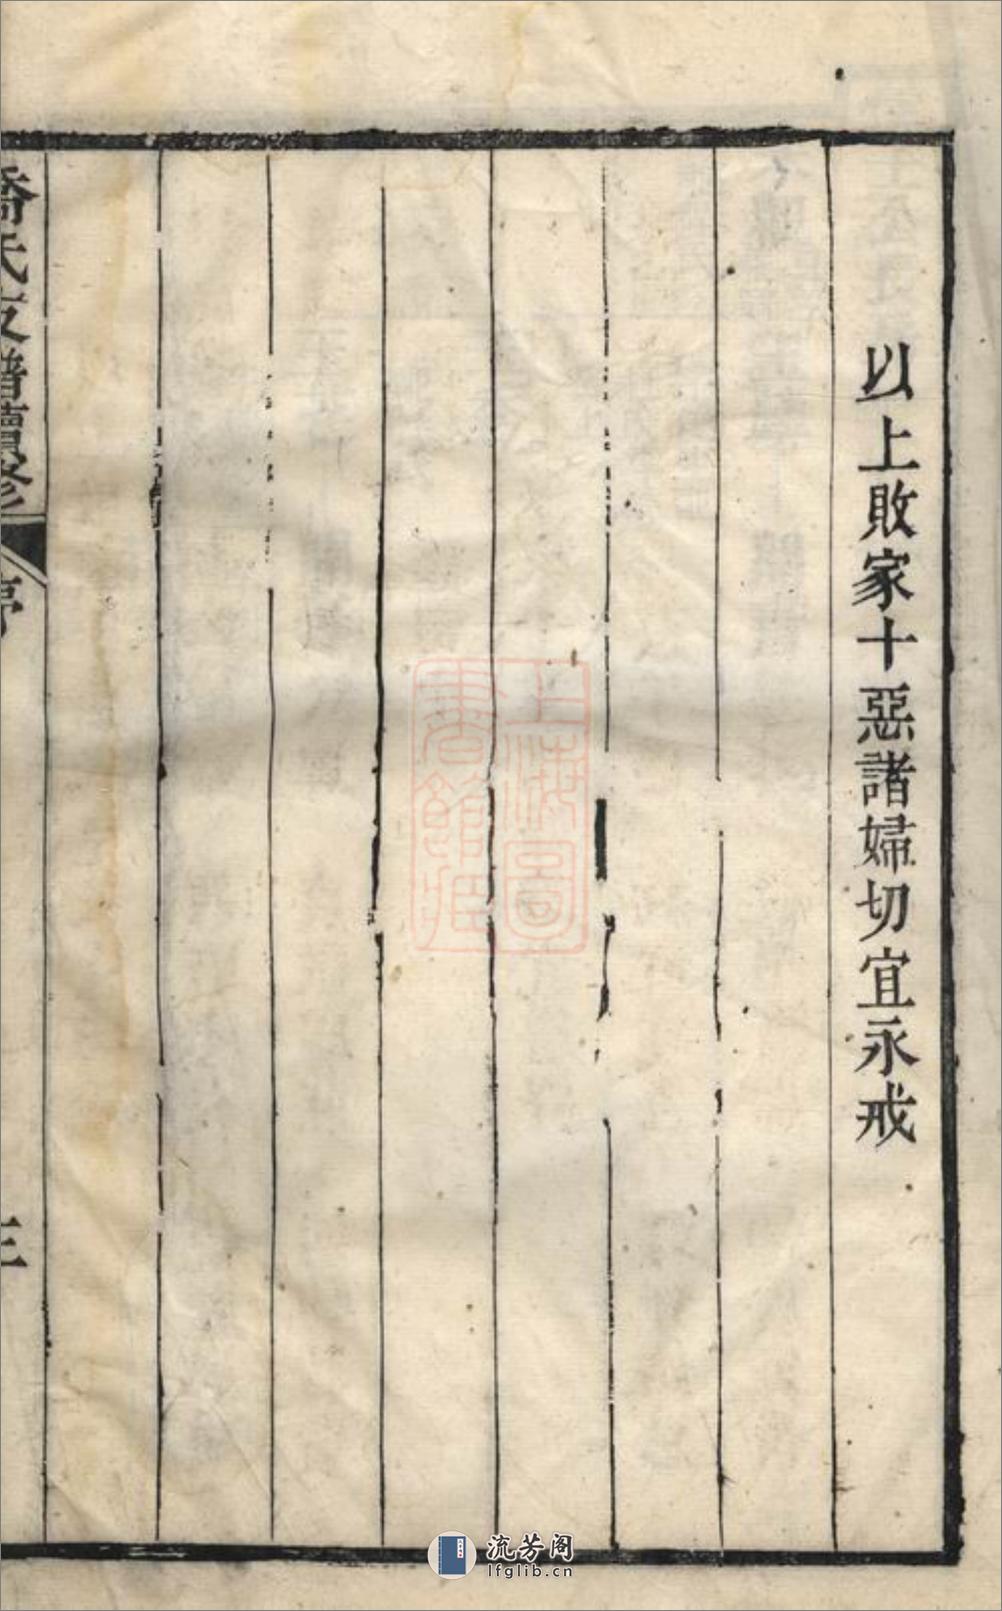 以上敗家十惡諸婦切宜永戒
上海圖書館藏
流芳阁
lfglib.cn